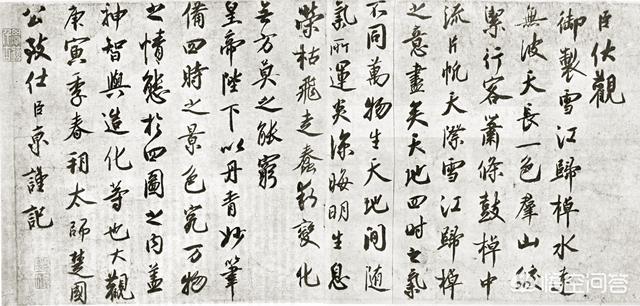 臣伏觀
御製雪江歸棹水遠
無波天長一色羣山皎
潔行客蕭條鼓棹中
流片帆天際雪江歸棹
之意盡矣天地四時之氣
不同萬物生天地間隨
氣所運炎涼晦明生息
榮枯飛走蠢動變化
無方莫之能窮
皇帝陛下以丹青妙筆
備四時之景色究万物
之情態於四圖之內蓋
神智與造化等也大觀
庚寅季春朔太師楚國
公致仕臣京謹記
悟空问答